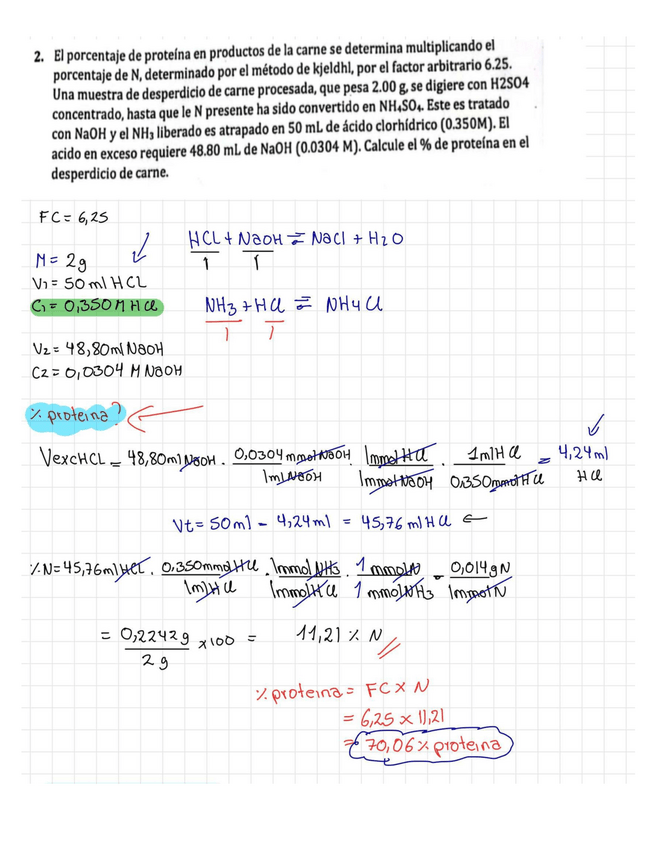 2. El porcentaje de proteína en productos de la carne se determina multiplicando el
porcentaje de N, determinado por el método de kjeldhl, por el factor arbitrario 6.25.
Una muestra de desperdicio de carne procesada, que pesa 2.00 g, se digiere con H2SO4
concentrado, hasta que le N presente ha sido convertido en NH₄SO₄. Este es tratado
con NaOH y el NH₃ liberado es atrapado en 50 mL de ácido clorhídrico (0.350M). El
acido en exceso requiere 48.80 mL de NaOH (0.0304 M). Calcule el % de proteína en el
desperdicio de carne.
FC = 6,25
HCL + NaOH ⇌ NaCl + H2O
1 1
M = 2g
V1 = 50 ml HCL
C1 = 0,350 M HCl
NH3 + HCl ⇌ NH4Cl
1 1
V2 = 48,80 ml NaOH
C2 = 0,0304 M NaOH
% proteina?
VexcHCL = 48,80 ml NaOH . 0,0304 mmol NaOH / 1 ml NaOH . 1 mmol HCl / 1 mmol NaOH . 1 ml HCl / 0,350 mmol HCl = 4,24 ml HCl
Vt = 50 ml - 4,24 ml = 45,76 ml HCl
% N = 45,76 ml HCL . 0,350 mmol HCl / 1 ml HCl . 1 mmol NH3 / 1 mmol HCl . 1 mmol N / 1 mmol NH3 . 0,014 g N / 1 mmol N
= 0,2242 g / 2 g x 100 = 11,21 % N
% proteina = FC x N
= 6,25 x 11,21
= 70,06 % proteina